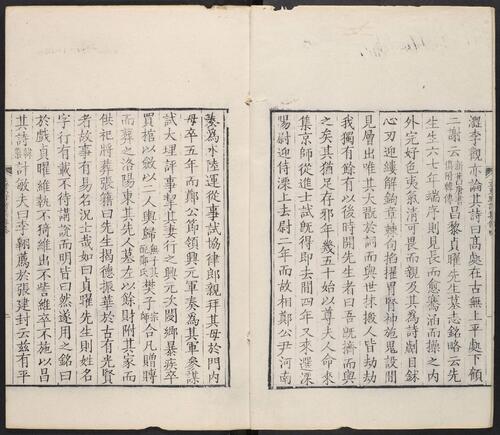 澀李觀亦論其詩曰高處在古無上平處下顧
二謝云昌黎貞曜先生墓志銘略云先
生生六七年端序則見長而愈騫涵而揉之內
外完好色夷氣清可畏而親及其爲詩劌目鉥
心刃迎縷解鈎章棘句掐擢胃腎神施鬼設間
見層出唯其大翫於詞而與世抹摋人皆劫劫
我獨有餘有以後時開先生者曰吾既擠而與
之矣其猶足存邪年幾五十始以尊夫人命來
集京師從進士試既得即去間四年又來選深
陽尉迎侍溧上去尉二年而故相鄭公尹河南
奏爲水陸運從事試協律郎親拜其母於門內
母卒五年而鄭公節領興元軍奏爲其軍參謀
試大理評事挈其妻行之興元次閿鄉暴疾卒
買棺以斂以二人輿歸無子其配鄭氏樊子宗師合凡賻贈
而葬之洛陽東其先人墓左以餘財附其家而
供祀將葬張籍曰先生揭德振華於古有光賢
者故事有易名況士哉如曰貞曜先生則姓名
字行有載不待講說而明皆曰然遂用之銘曰
於戲貞曜維執不猗維出不訾維卒不施以昌
其詩許敬夫曰李翱薦於張建封云茲有平